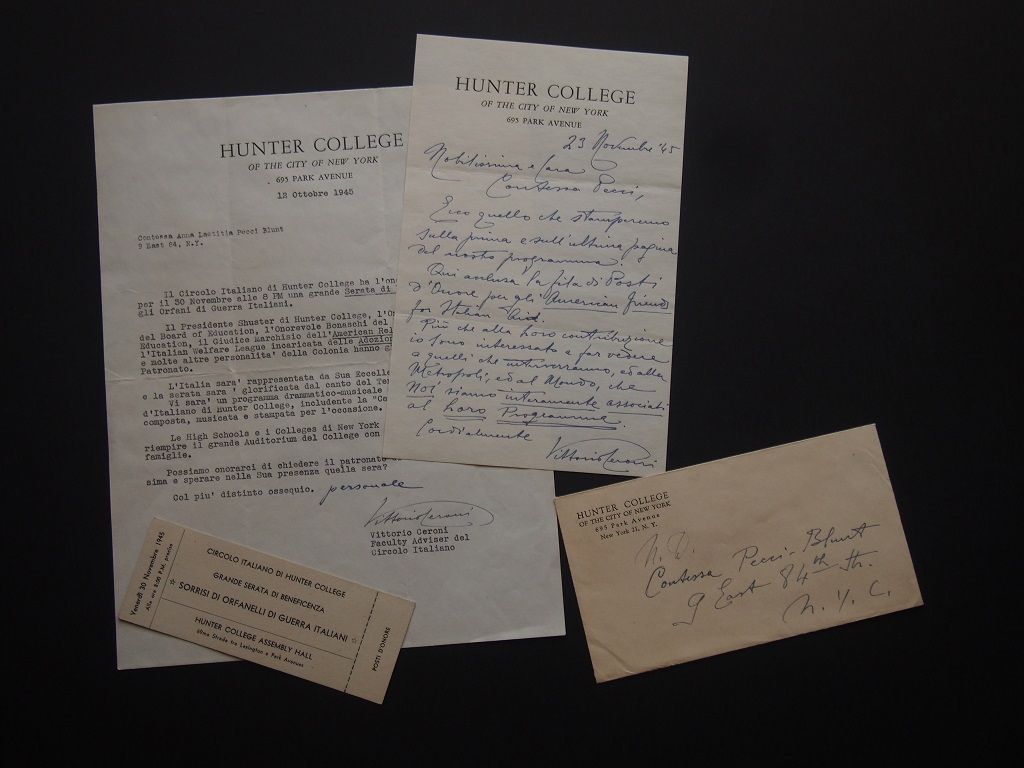 HUNTER COLLEGE
OF THE CITY OF NEW YORK
695 PARK AVENUE
12 Ottobre 1945
Contessa Anna Laetitia Pecci Blunt
9 East 84, N.Y.
Il Circolo Italiano di Hunter College ha l'ono
per il 30 Novembre alle 8 PM una grande Serata di
gli Orfani di Guerra Italiani.
Il Presidente Shuster di Hunter College, l'O
del Board of Education, l'Onorevole Bonaschi del
Education, il Giudice Marchisio dell'American Rel
l'Italian Welfare League incaricata delle Adozion
e molte altre personalita' della Colonia hanno g
Patronato.
L'Italia sara' rappresentata da Sua Eccelle
e la serata sara' glorificata dal canto del Te
Vi sara' un programma drammatico-musicale
d'Italiano di Hunter College, includente la "Ca
composta, musicata e stampata per l'occasione.
Le High Schools e i Colleges di New York
riempire il grande Auditorium del College con
famiglie.
Possiamo onorarci di chiedere il patronato
sima e sperare nella Sua presenza quella sera?
Col piu' distinto ossequio. personale
Vittorio Ceroni
Vittorio Ceroni
Faculty Adviser del
Circolo Italiano
HUNTER COLLEGE
OF THE CITY OF NEW YORK
695 PARK AVENUE
23 Novembre '45
Nobilissima e Cara
Contessa Pecci,
Ecco quello che stamperemo
sulla prima e sull'ultima pagina
del nostro programma.
Qui acclusa la fila di Posti
d'Onore per gli American Friends
for Italian Aid.
Più che alla Loro contribuzione
io sono interessato a far vedere
a quelli che interverranno, ed alla
Metropoli, ed al Mondo, che
Noi siamo interamente associati
al Loro Programma.
Cordialmente
Vittorio Ceroni
Venerdì 30 Novembre 1945
Alle ore 8:00 P.M. precise
CIRCOLO ITALIANO DI HUNTER COLLEGE
GRANDE SERATA DI BENEFICENZA
☆ SORRISI DI ORFANELLI DI GUERRA ITALIANI ☆
HUNTER COLLEGE ASSEMBLY HALL
69ma Strada tra Lexington e Park Avenues
POSTI D'ONORE
HUNTER COLLEGE
OF THE CITY OF NEW YORK
695 Park Avenue
New York 21, N. Y.
N. D.
Contessa Pecci-Blunt
9 East 84th St.
N. Y. C.